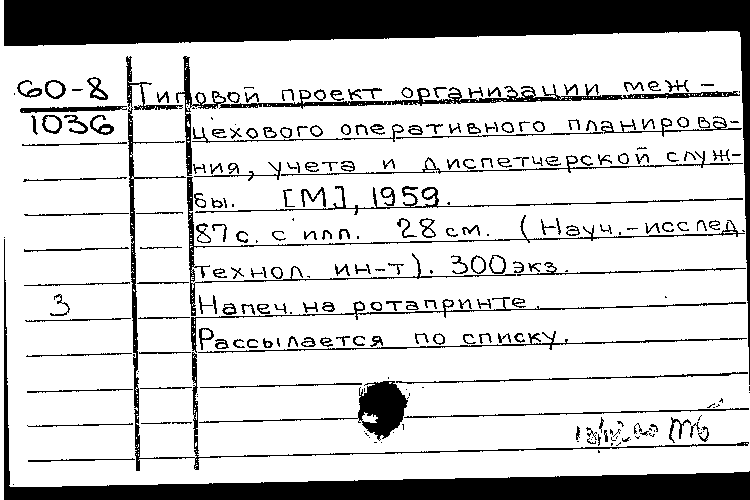 60-8 Типовой проект организации меж-
1036 цехового оперативного планирова-
ния, учета и диспетчерской служ-
бы. [М.], 1959.
87с. с илл. 28см. (Науч.-исслед.
технол. ин-т). 300экз.
3 Напеч. на ротапринте.
Рассылается по списку.